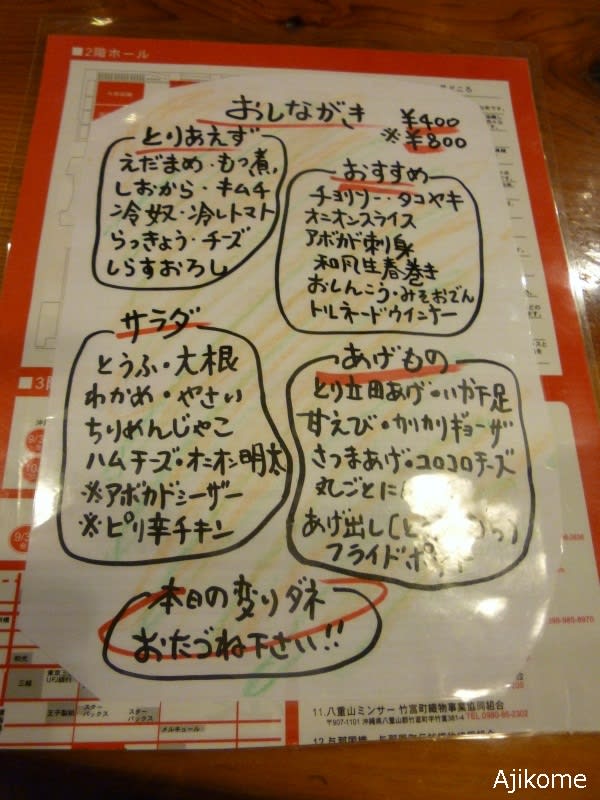 ■2階ホール
おしながき
¥400
※¥800
とりあえず
えだまめ・もつ煮
しおから・キムチ
冷奴・冷しトマト
らっきょう・チーズ
しらすおろし
おすすめ
チョリソー・タコヤキ
オニオンスライス
アボカド刺身
和風生春巻き
おしんこう・みそおでん
トルネードウインナー
サラダ
とうふ・大根
わかめ・やさい
ちりめんじゃこ
ハムチーズ・オニオン明太
※アボカドシーザー
※ピリ辛チキン
あげもの
とり立田あげ・いか下足
甘えび・カリカリギョーザ
さつまあげ・コロコロチーズ
丸ごとに
あげ出し
フライドポテト
本日の変りダネ
おたづね下さい!!
三越
東京三菱UFJ銀行
王子製紙
スターバックス
スターバックス
メルキュール
098-985-8970
11.八重山ミンサー 竹富町織物事業協同組合
〒907-1101 沖縄県八重山郡竹富町字竹富381-4 TEL 0980-85-2302
Ajikome